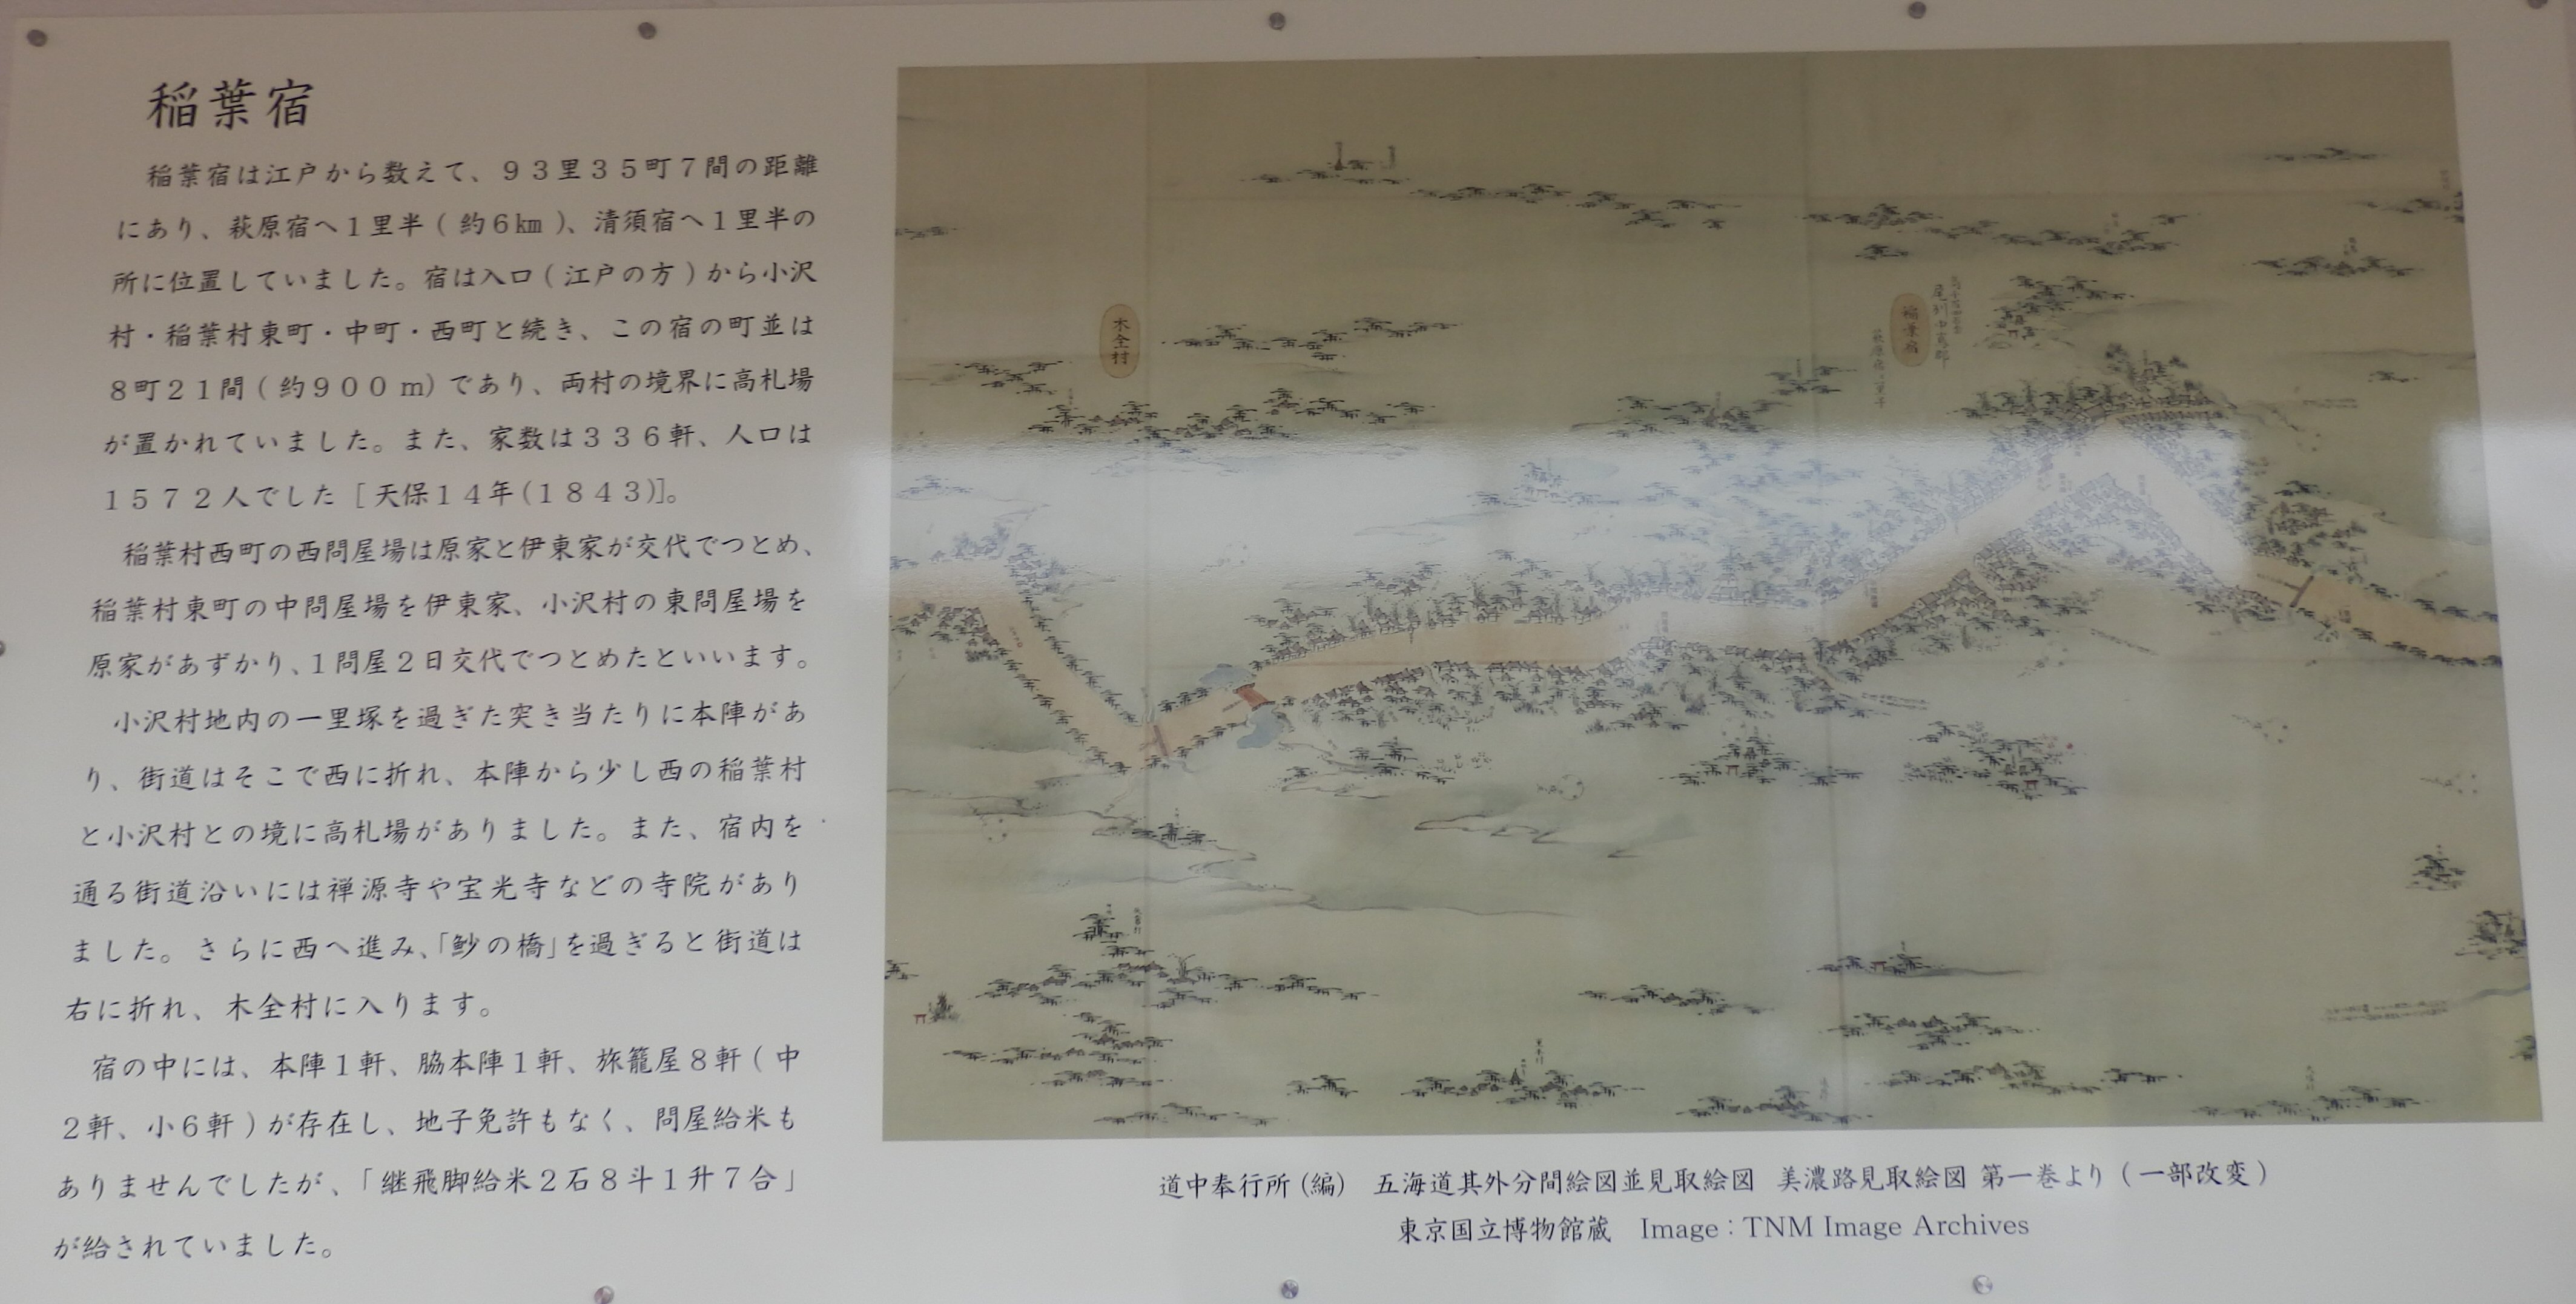 稲葉宿
稲葉宿は江戸から数えて、９３里３５町７間の距離
にあり、萩原宿へ１里半（約６㎞）、清須宿へ１里半の
所に位置していました。宿は入口（江戸の方）から小沢
村・稲葉村東町・中町・西町と続き、この宿の町並は
８町２１間（約９００ｍ）であり、両村の境界に高札場
が置かれていました。また、家数は３３６軒、人口は
１５７２人でした［天保１４年（１８４３）］。
稲葉村西町の西問屋場は原家と伊東家が交代でつとめ、
稲葉村東町の中問屋場を伊東家、小沢村の東問屋場を
原家があずかり、１問屋２日交代でつとめたといいます。
小沢村地内の一里塚を過ぎた突き当たりに本陣があ
り、街道はそこで西に折れ、本陣から少し西の稲葉村
と小沢村との境に高札場がありました。また、宿内を
通る街道沿いには禅源寺や宝光寺などの寺院があり
ました。さらに西へ進み、「魦の橋」を過ぎると街道は
右に折れ、木全村に入ります。
宿の中には、本陣１軒、脇本陣１軒、旅籠屋８軒（中
２軒、小６軒）が存在し、地子免許もなく、問屋給米も
ありませんでしたが、「継飛脚給米２石８斗１升７合」
が給されていました。
木全村
稲葉宿
道中奉行所（編）　五海道其外分間絵図並見取絵図　美濃路見取絵図 第一巻より（一部改変）
東京国立博物館蔵　Image：TNM Image Archives